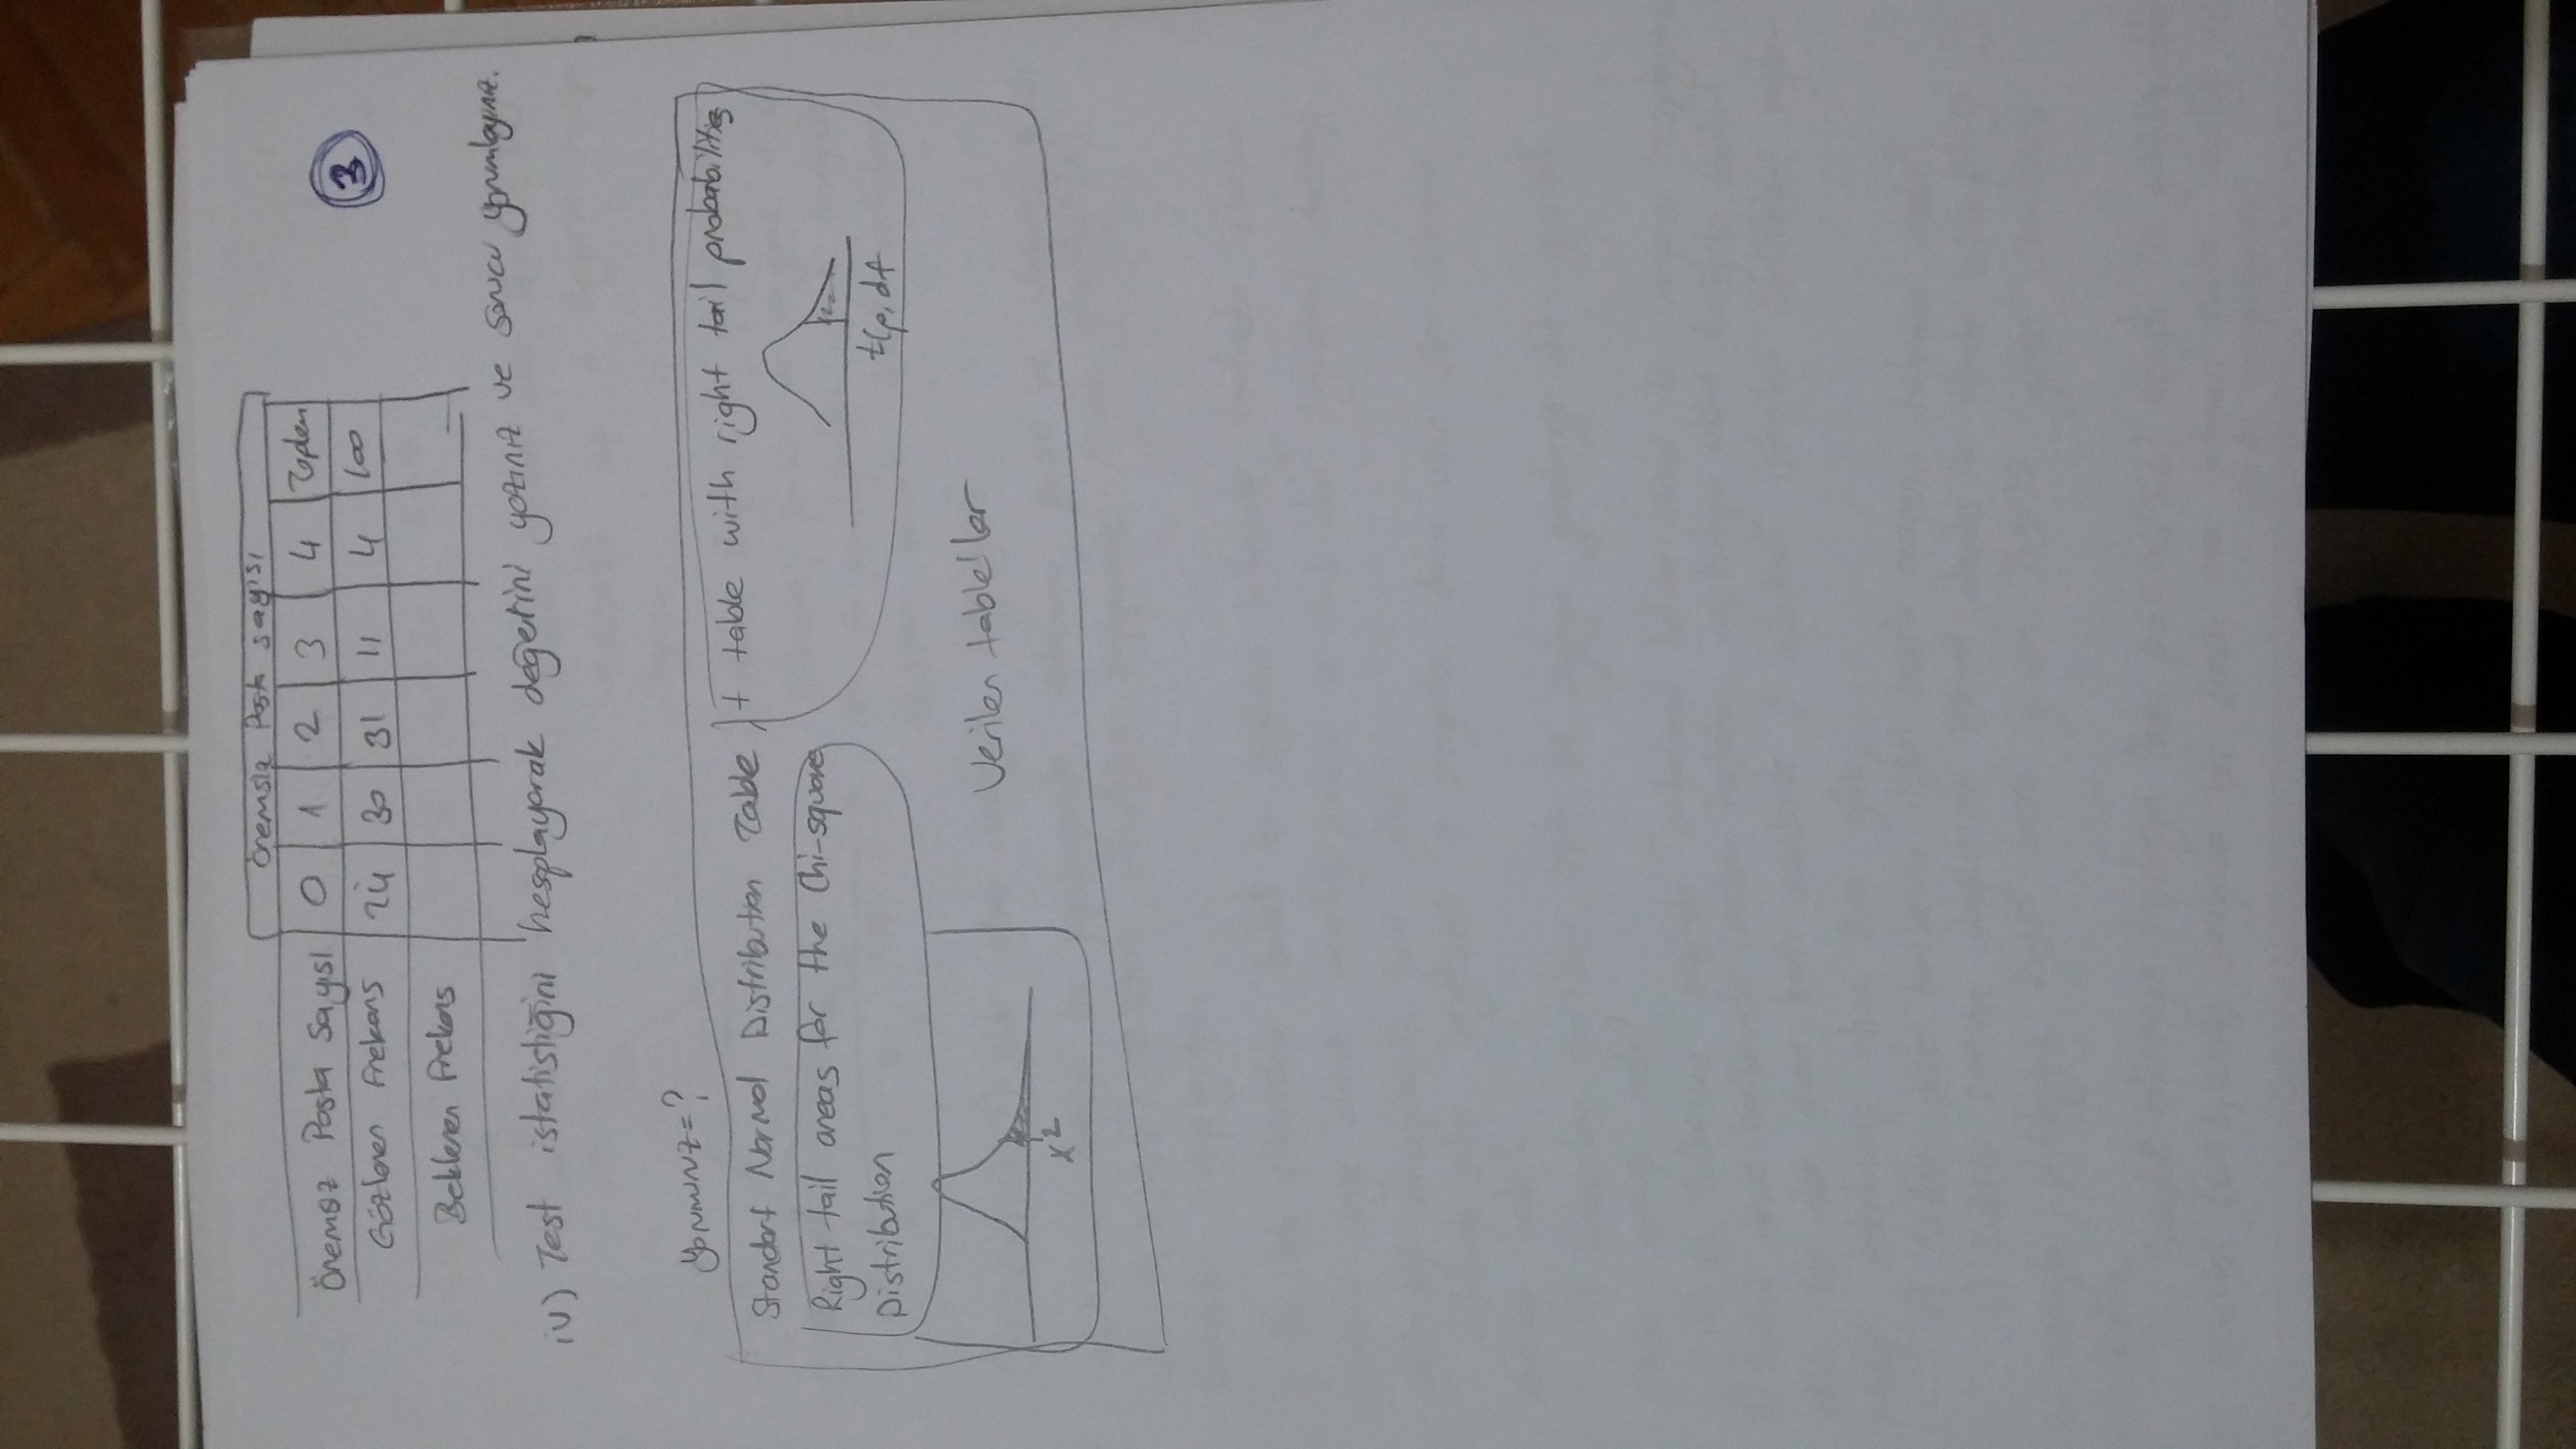 Önemsiz Posta sayısı
Önemsiz Posta Sayısı 0 1 2 3 4 Toplam
Gözlenen Frekans 24 30 31 11 4 100
Beklenen Frekans
3
iv) Test istatistiğini hesaplayarak değerini yazınız ve sonucu yorumlayınız.
yorumunuz=?
Standart Normal Distribution Table
t table with right tail probabilities
Right tail areas for the Chi-square
Distribution
t(p, df
x²
Verilen table'lar